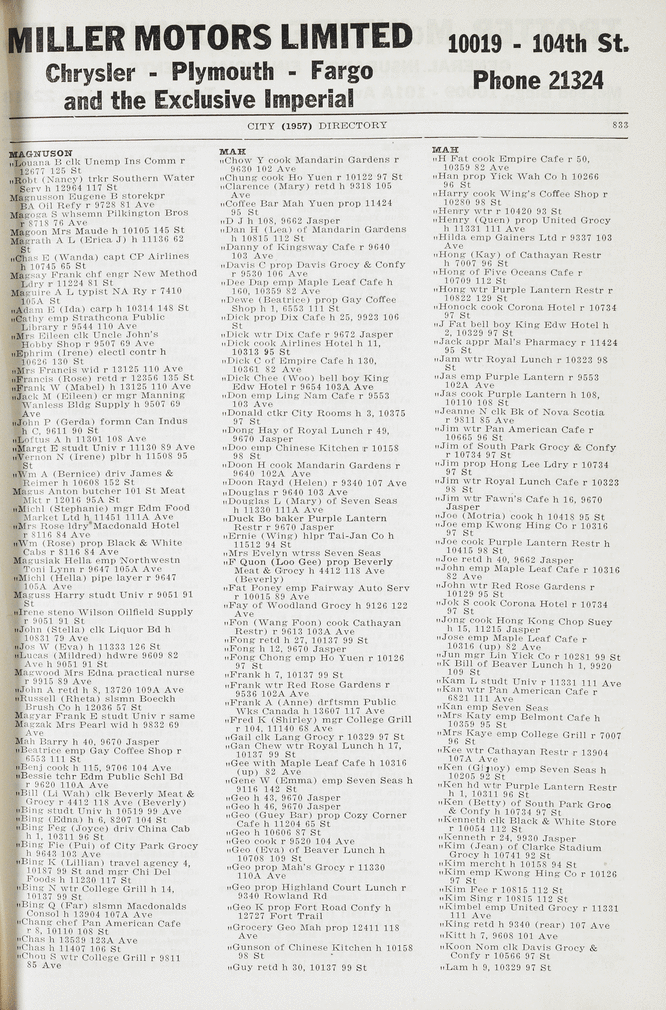 MILLER MOTORS LIMITED
Chrysler - Plymouth - Fargo
and the Exclusive Imperial
10019 - 104th St.
Phone 21324
CITY (1957) DIRECTORY 833
MAGNUSON
„Louana B clk Unemp Ins Comm r
12677 125 St
„Robt (Nancy) trkr Southern Water
Serv h 12964 117 St
Magnusson Eugene B storekpr
BA Oil Refy r 9728 81 Ave
Magoga S whsemn Pilkington Bros
r 8718 76 Ave
Magoon Mrs Maude h 10105 145 St
Magrath A L (Erica J) h 11136 62
St
„Chas E (Wanda) capt CP Airlines
h 10745 65 St
Magsay Frank chf engr New Method
Ldry r 11224 81 St
Maguire A L typist NA Ry r 7410
105A St
„Adam E (Ida) carp h 10314 148 St
„Cathy emp Strathcona Public
Library r 9544 110 Ave
„Mrs Eileen clk Uncle John's
Hobby Shop r 9507 69 Ave
„Ephrim (Irene) electl contr h
10626 130 St
„Mrs Francis wid r 13125 110 Ave
„Francis (Rose) retd r 12356 135 St
„Frank W (Mabel) h 13125 110 Ave
„Jack M (Eileen) cr mgr Manning
Wanless Bldg Supply h 9507 69
Ave
„John P (Gerda) formn Can Indus
h C, 9611 90 St
„Loftus A h 11301 108 Ave
„Margt E studt Univ r 11130 89 Ave
„Vernon N (Irene) plbr h 11508 95
St
„Wm A (Bernice) driv James &
Reimer h 10608 152 St
Magus Anton butcher 101 St Meat
Mkt r 12016 95A St
„Michl (Stephanie) mgr Edm Food
Market Ltd h 11451 111A Ave
„Mrs Rose ldry Macdonald Hotel
r 8116 84 Ave
„Wm (Rose) prop Black & White
Cabs r 8116 84 Ave
Magusiak Hella emp Northwestn
Toni Lynn r 9647 105A Ave
„Michl (Hella) pipe layer r 9647
105A Ave
Maguss Harry studt Univ r 9051 91
St
„Irene steno Wilson Oilfield Supply
r 9051 91 St
„John (Stella) clk Liquor Bd h
10831 79 Ave
„Jos W (Eva) h 11333 126 St
„Lucas (Mildred) hdwre 9609 82
Ave h 9051 91 St
Magwood Mrs Edna practical nurse
r 9915 89 Ave
„John A retd h 8, 13720 109A Ave
„Russell (Rheta) slsmn Boeckh
Brush Co h 12036 57 St
Magyar Frank E studt Univ r same
Magzak Mrs Pearl wid h 9832 69
Ave
Mah Barry h 40, 9670 Jasper
„Beatrice emp Gay Coffee Shop r
6553 111 St
„Benj cook h 115, 9706 104 Ave
„Bessie tchr Edm Public Schl Bd
r 9620 110A Ave
„Bill (Li Wah) clk Beverly Meat &
Grocy r 4412 118 Ave (Beverly)
„Bing studt Univ h 10519 99 Ave
„Bing (Edna) h 6, 8207 104 St
„Bing Feg (Joyce) driv China Cab
h 1, 10311 96 St
„Bing Fie (Pui) of City Park Grocy
h 9643 103 Ave
„Bing K (Lillian) travel agency 4,
10187 99 St and mgr Chi Del
Foods h 11230 117 St
„Bing N wtr College Grill h 14,
10137 99 St
„Bing Q (Far) slsmn Macdonalds
Consol h 13904 107A Ave
„Chang chef Pan American Cafe
r 8, 10110 108 St
„Chas h 13539 123A Ave
„Chas h 11407 106 St
„Chou S wtr College Grill r 9811
85 Ave
MAH
„Chow Y cook Mandarin Gardens r
9630 102 Ave
„Chung cook Ho Yuen r 10122 97 St
„Clarence (Mary) retd h 9318 105
Ave
„Coffee Bar Mah Yuen prop 11424
95 St
„D J h 108, 9662 Jasper
„Dan H (Lea) of Mandarin Gardens
h 10815 112 St
„Danny of Kingsway Cafe r 9640
103 Ave
„Davis C prop Davis Grocy & Confy
r 9530 106 Ave
„Dee Dap emp Maple Leaf Cafe h
160, 10359 82 Ave
„Dewe (Beatrice) prop Gay Coffee
Shop h 1, 6553 111 St
„Dick prop Dix Cafe h 25, 9923 106
St
„Dick wtr Dix Cafe r 9672 Jasper
„Dick cook Airlines Hotel h 11,
10313 95 St
„Dick C of Empire Cafe h 130,
10361 82 Ave
„Dick Chee (Woo) bell boy King
Edw Hotel r 9654 103A Ave
„Don emp Ling Nam Cafe r 9553
103 Ave
„Donald ctkr City Rooms h 3, 10375
97 St
„Dong Hay of Royal Lunch r 49,
9670 Jasper
„Doo emp Chinese Kitchen r 10158
98 St
„Doon H cook Mandarin Gardens r
9640 102A Ave
„Doon Rayd (Helen) r 9340 107 Ave
„Douglas r 9640 103 Ave
„Douglas L (Mary) of Seven Seas
h 11330 111A Ave
„Duck Bo baker Purple Lantern
Restr r 9670 Jasper
„Ernie (Wing) hlpr Tai-Jan Co h
11512 94 St
„Mrs Evelyn wtrss Seven Seas
„F Quon (Loo Gee) prop Beverly
Meat & Grocy h 4412 118 Ave
(Beverly)
„Fat Poney emp Fairway Auto Serv
r 10015 89 Ave
„Fay of Woodland Grocy h 9126 122
Ave
„Fon (Wang Foon) cook Cathayan
Restr) r 9613 103A Ave
„Fong retd h 27, 10137 99 St
„Fong h 12, 9670 Jasper
„Fong Chong emp Ho Yuen r 10126
97 St
„Frank h 7, 10137 99 St
„Frank wtr Red Rose Gardens r
9536 102A Ave
„Frank A (Anne) drftsmn Public
Wks Canada h 13607 117 Ave
„Fred K (Shirley) mgr College Grill
r 104, 11140 68 Ave
„Gail clk Lang Grocy r 10329 97 St
„Gan Chew wtr Royal Lunch h 17,
10137 99 St
„Gee with Maple Leaf Cafe h 10316
(up) 82 Ave
„Gene W (Emma) emp Seven Seas h
9116 142 St
„Geo h 43, 9670 Jasper
„Geo h 46, 9670 Jasper
„Geo (Guey Bar) prop Cozy Corner
Cafe h 11204 65 St
„Geo h 10606 87 St
„Geo cook r 9520 104 Ave
„Geo (Eva) of Beaver Lunch h
10708 109 St
„Geo prop Mah's Grocy r 11330
110A Ave
„Geo prop Highland Court Lunch r
9340 Rowland Rd
„Geo K prop Fort Road Confy h
12727 Fort Trail
„Grocery Geo Mah prop 12411 118
Ave
„Gunson of Chinese Kitchen h 10158
98 St
„Guy retd h 30, 10137 99 St
MAH
„H Fat cook Empire Cafe r 50,
10359 82 Ave
„Han prop Yick Wah Co h 10266
96 St
„Harry cook Wing's Coffee Shop r
10280 98 St
„Henry wtr r 10420 93 St
„Henry (Quen) prop United Grocy
h 11331 111 Ave
„Hilda emp Gainers Ltd r 9337 103
Ave
„Hong (Kay) of Cathayan Restr
h 7007 96 St
„Hong of Five Oceans Cafe r
10709 112 St
„Hong wtr Purple Lantern Restr r
10822 129 St
„Honock cook Corona Hotel r 10734
97 St
„J Fat bell boy King Edw Hotel h
2, 10329 97 St
„Jack appr Mal's Pharmacy r 11424
95 St
„Jam wtr Royal Lunch r 10323 98
St
„Jas emp Purple Lantern r 9553
102A Ave
„Jas cook Purple Lantern h 108,
10110 108 St
„Jeanne N clk Bk of Nova Scotia
r 9811 85 Ave
„Jim wtr Pan American Cafe r
10665 96 St
„Jim of South Park Grocy & Confy
r 10734 97 St
„Jim prop Hong Lee Ldry r 10734
97 St
„Jim wtr Royal Lunch Cafe r 10323
98 St
„Jim wtr Fawn's Cafe h 16, 9670
Jasper
„Joe (Motria) cook h 10418 95 St
„Joe emp Kwong Hing Co r 10316
97 St
„Joe cook Purple Lantern Restr h
10415 98 St
„Joe retd h 40, 9662 Jasper
„John emp Maple Leaf Cafe r 10316
82 Ave
„John wtr Red Rose Gardens r
10129 95 St
„Jok S cook Corona Hotel r 10734
97 St
„Jong cook Hong Kong Chop Suey
h 15, 11215 Jasper
„Jose emp Maple Leaf Cafe r
10316 (up) 82 Ave
„Jun mgr Lin Yick Co r 10281 99 St
„K Bill of Beaver Lunch h 1, 9920
109 St
„Kam L studt Univ r 11331 111 Ave
„Kan wtr Pan American Cafe r
6821 111 Ave
„Kan emp Seven Seas
„Mrs Katy emp Belmont Cafe h
10359 95 St
„Mrs Kaye emp College Grill r 7007
96 St
„Kee wtr Cathayan Restr r 13904
107A Ave
„Ken (Gloy) emp Seven Seas h
10205 92 St
„Ken hd wtr Purple Lantern Restr
h 1, 10311 96 St
„Ken (Betty) of South Park Groc
& Confy h 10734 97 St
„Kenneth clk Black & White Store
r 10054 112 St
„Kenneth r 24, 9930 Jasper
„Kim (Jean) of Clarke Stadium
Grocy h 10741 92 St
„Kim mercht h 10158 94 St
„Kim emp Kwong Hing Co r 10126
97 St
„Kim Fee r 10815 112 St
„Kim Sing r 10815 112 St
„Kimbel emp United Grocy r 11331
111 Ave
„King retd h 9340 (rear) 107 Ave
„Kitt h 7, 9608 101 Ave
„Koon Nom clk Davis Grocy &
Confy r 10566 97 St
„Lam h 9, 10329 97 St